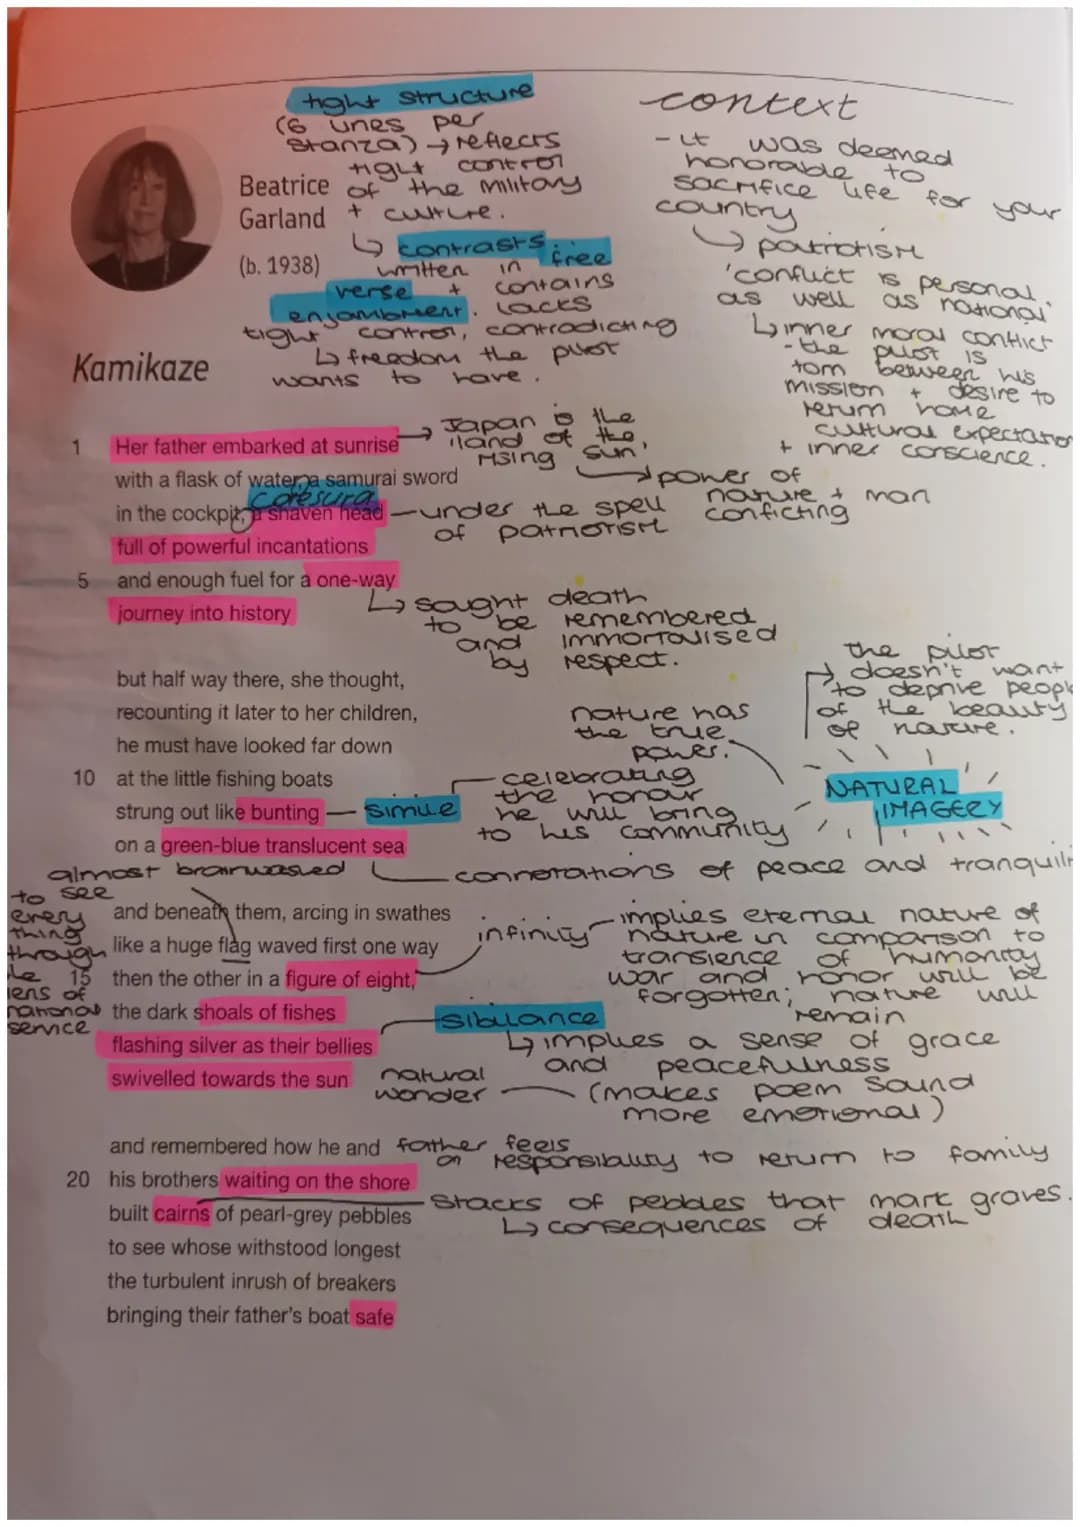 tight structure
(6 lines per
stanza) → reflects
tight control
of the military
+ culture.
↳ contrasts.
written in free
verse + contains
enjambment. lacks
tight control, contradicting
↳ freedom the pilot
wants to have.
context
- it was deemed
honorable to
sacrifice life for your
country
↳ patriotism
'conflict is personal
as well as national'
↳ inner moral conflict
- the pilot is
torn between his
mission + desire to
return home
cultural expectation
+ inner conscience.
Beatrice
Garland
(b. 1938)
Kamikaze
1 Her father embarked at sunrise
→ Japan is the
'land of the
rising sun'
with a flask of water, a samurai sword
caresura
in the cockpit, a shaven head
full of powerful incantations
under the spell
of patriotism
→ power of
nature + man
conflicting
5 and enough fuel for a one-way
journey into history
↳ sought death
to be remembered
and immortalised
by respect.
but half way there, she thought,
recounting it later to her children,
he must have looked far down
10 at the little fishing boats
strung out like bunting
on a green-blue translucent sea
simile
celebrating
the honour
he will bring
to his community
nature has
the true
power.
the pilot
doesn't want
to deprive people
of the beauty
of nature.
NATURAL
IMAGERY
connotations of peace and tranquili
almost brainwashed
to see
every
thing
through
the
lens of
national
service
and beneath them, arcing in swathes
like a huge flag waved first one way
15 then the other in a figure of eight,
the dark shoals of fishes
flashing silver as their bellies
swivelled towards the sun
infinity
implies eternal nature of
nature in comparison to
transience of humanity
war and honor will be
forgotten; nature will
remain
sibilance
↳ implies a sense of grace
and peacefulness
(makes poem sound
more emotional)
natural
wonder
and remembered how he and
20 his brothers waiting on the shore
built cairns of pearl-grey pebbles
to see whose withstood longest
the turbulent inrush of breakers
bringing their father's boat safe
father feels
on responsibility to return to family
stacks of pebbles that mark graves.
↳ consequences of death